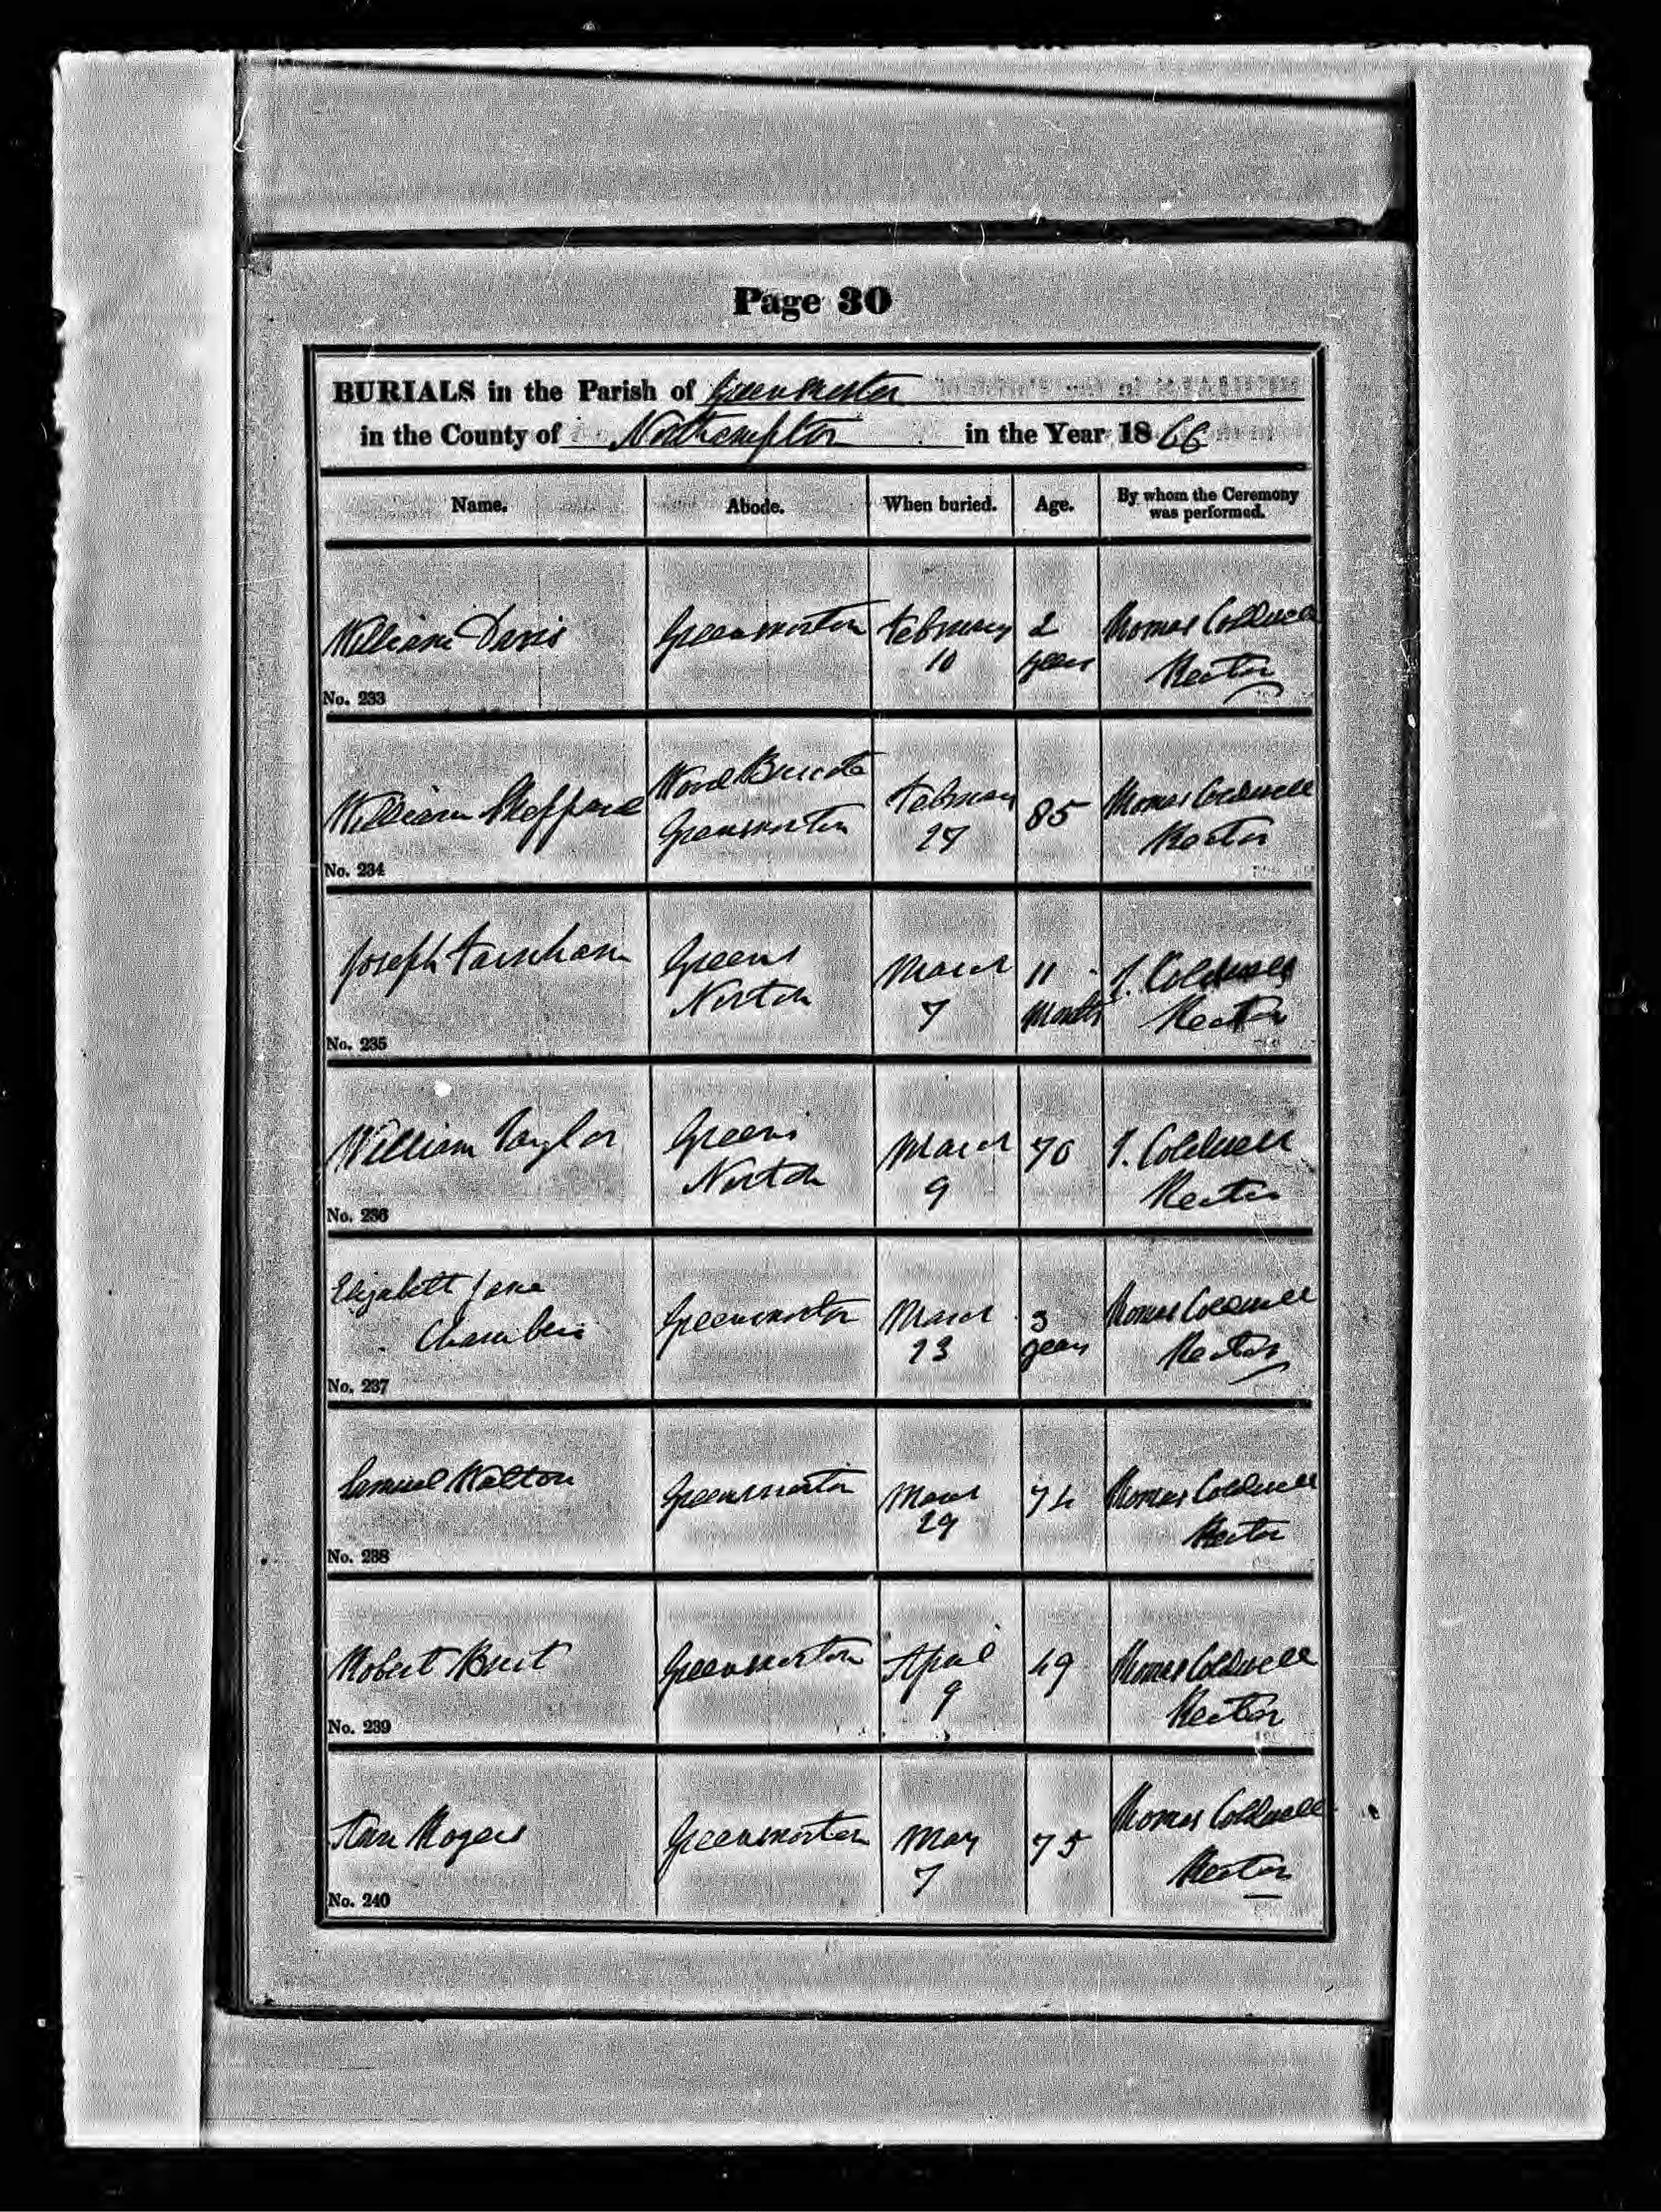 Page 30
BURIALS in the Parish of Greensnorton
in the County of Northampton in the Year 1866
Name. Abode. When buried. Age. By whom the Ceremony was performed.
William Davis Greensnorton February 10 2 years Thomas Coldwell Rector
No. 233
William Sheppard Wood Burcote Greensnorton February 27 85 Thomas Coldwell Rector
No. 234
Joseph Farnham Greens Norton March 7 11 Months T. Coldwell Rector
No. 235
William Taylor Greens Norton March 9 70 T. Coldwell Rector
No. 236
Elizabeth Jane Chambers Greensnorton March 23 3 years Thomas Coldwell Rector
No. 237
Samuel Walton Greensnorton March 29 74 Thomas Coldwell Rector
No. 238
Robert Greensnorton April 9 49 Thomas Coldwell Rector
No. 239
Ann Rogers Greensnorton May 7 75 Thomas Coldwell Rector
No. 240